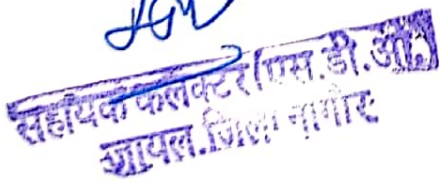 सहायक कलक्टर (एस.डी.ओ.)
जायल, जिला नागौर